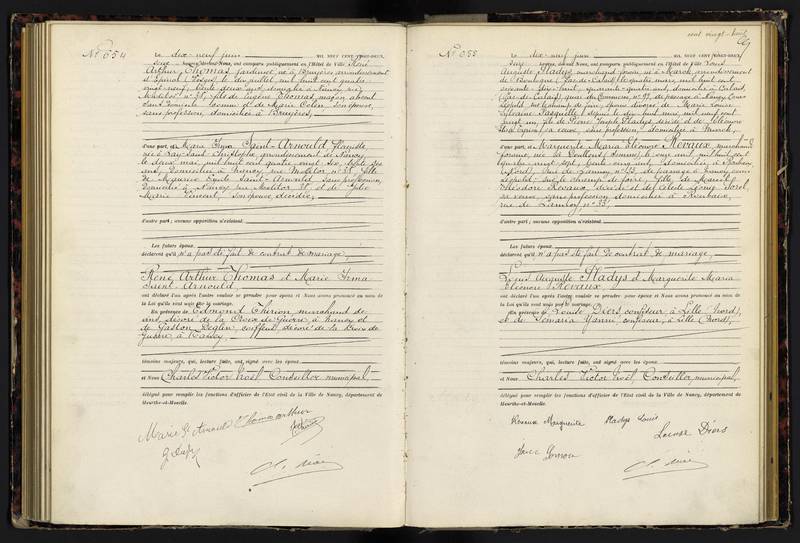 N° 654
Le dix-neuf juin MIL NEUF CENT VINGT-DEUX,
seize heures, devant Nous, ont comparu publiquement en l'Hôtel de Ville René
Arthur Thomas jardinier, né à Bruyères arrondissement
d'Epinal (Vosges) le juillet mil huit cent quatre
vingt-neuf, trente deux ans, domicilié à Nancy rue
Molitor n° 38, fils de Eugène Thomas, maçon absent
sans domicile connu et de Marie Colin son épouse,
sans profession, domiciliée à Bruyères,
d'une part, et Marie Irma Saint-Arnould, fleuriste,
née à Lay-Saint-Christophe arrondissement de Nancy
le deux mai, mil huit cent quatre vingt
ans, domiciliée à Nancy rue Molitor n° 38 fille
de Emile Saint-Arnould sans profession,
domicilié à Nancy rue Molitor 38 et de Julie
Marie Vincent, son épouse, décédée,
d'autre part ; aucune opposition n'existant.
Les futurs époux
déclarent qu'il n'a pas été fait de contrat de mariage.
René Arthur Thomas et Marie Irma
Saint Arnould
ont déclaré l'un après l'autre vouloir se prendre pour époux et Nous avons prononcé au nom de
la Loi qu'ils sont unis par le mariage.
En présence de Edmond Thirion marchand de
décoré de la Croix de Guerre à Nancy et
de Gaston coiffeur décoré de la Croix de
Guerre, à Nancy,
témoins majeurs, qui, lecture faite, ont signé avec les époux
et Nous Charles Victor Noël Conseiller municipal,
délégué pour remplir les fonctions d'officier de l'Etat civil de la Ville de Nancy, département de
Meurthe-et-Moselle.
Marie St Arnould Thomas Arthur
cent vingt-huit
N° 655
Le dix-neuf juin MIL NEUF CENT VINGT-DEUX,
seize heures, devant Nous, ont comparu publiquement en l'Hôtel de Ville Louis
Auguste Pladys, marchand forain, né à Marck arrondissement
de Boulogne (Pas-de-Calais) le quatre mars, mil huit cent
soixante-dix-huit, quarante-quatre ans, domicilié à Calais,
(Pas-de-Calais) quai du Commerce n° de passage à Nancy Cours
Léopold sur le champ de foire, époux divorcé de Marie Louise
vingt un, fils de Pierre Joseph Pladys décédé et de
sa veuve, sans profession domiciliée à Marck,
d'une part, et Marguerite Maria Eléonore Revaux, marchande
foraine, née à (Somme), le onze mai, mil huit cent
quatre vingt sept, trente cinq ans, domiciliée à Roubaix
(Nord), rue de Lannoy, n° de passage à Nancy cours
Léopold sur le champ de foire, fille de
Théodore Revaux, décédé et de Sorel,
sa veuve, sans profession domiciliée à Roubaix,
rue de Lannoy, n°
d'autre part ; aucune opposition n'existant.
Les futurs époux
déclarent qu'il n'a pas été fait de contrat de mariage.
Louis Auguste Pladys et Marguerite Maria
Eléonore Revaux
ont déclaré l'un après l'autre vouloir se prendre pour époux et Nous avons prononcé au nom de
la Loi qu'ils sont unis par le mariage.
En présence de Louise Diers, confiseur à Lille (Nord),
et de confiseur, à Lille (Nord),
témoins majeurs, qui, lecture faite, ont signé avec les époux
et Nous Charles Victor Noël, Conseiller municipal,
délégué pour remplir les fonctions d'officier de l'Etat civil de la Ville de Nancy, département de
Meurthe-et-Moselle.
Revaux Marguerite Pladys Louis
Louise Diers